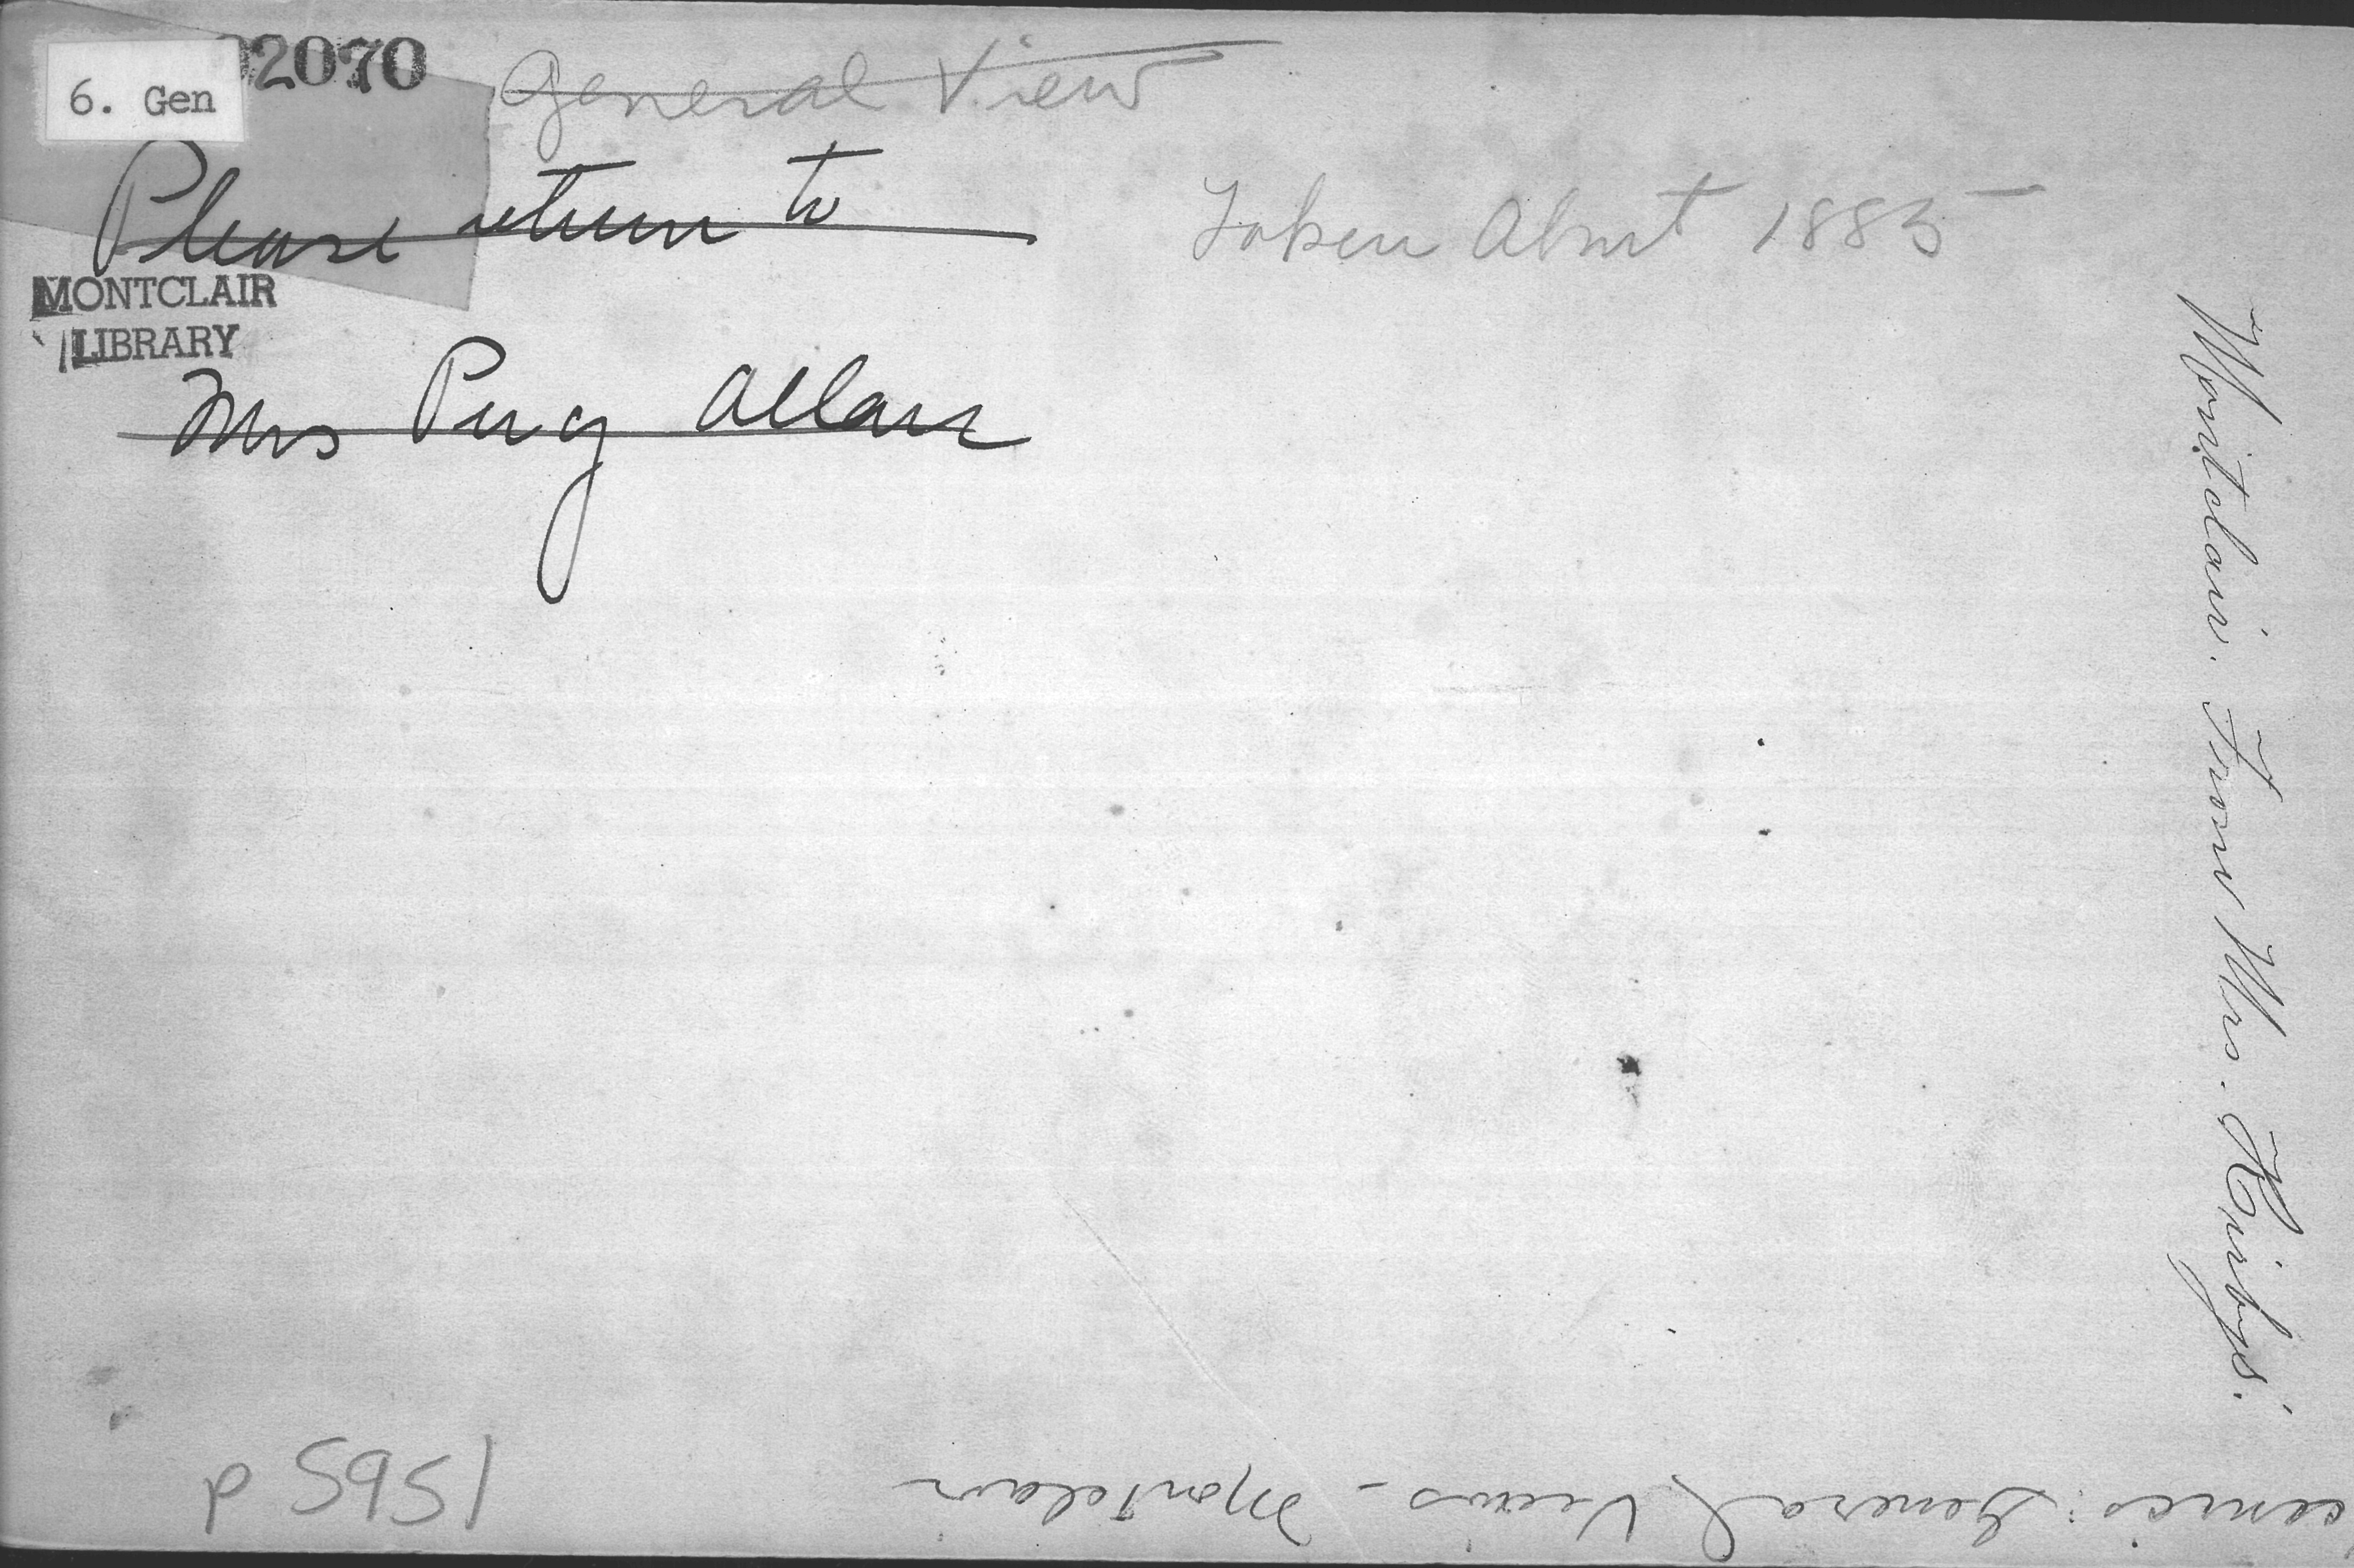 2070
6. Gen
General View
Please return to
Taken About 1885
MONTCLAIR
LIBRARY
Mrs Percy Allan
Montclair. From Mrs. Kirby's.
1565 d
cenics: General Views - Montclair